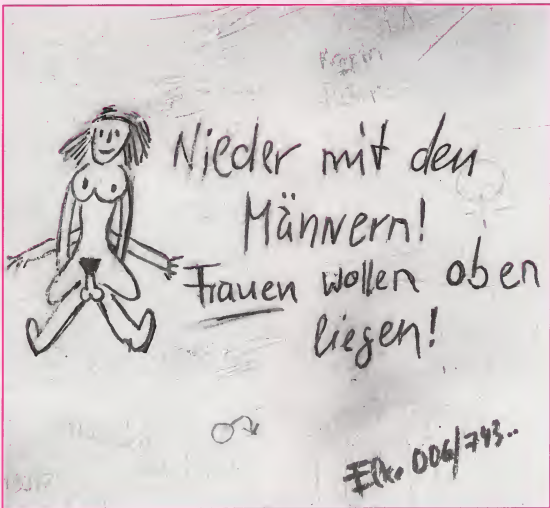 Nieder mit den
Männern!
Frauen wollen oben
liegen!
Elke 006/743..